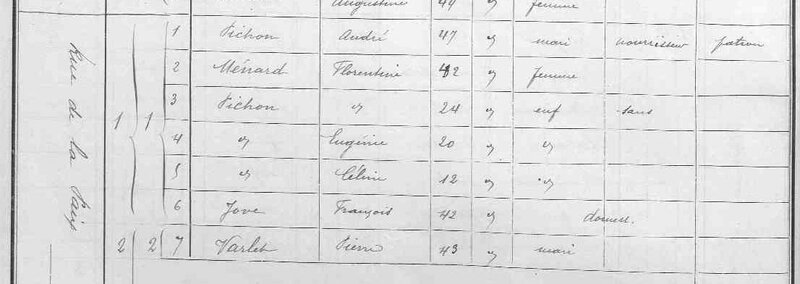 Augustine 44 " femme
Rue de la Paix
1 1 1 Pichon André 47 " mari nourrisseur patron
2 Ménard Florentine 42 " femme
3 Pichon " 24 " enf sans
4 " Eugénie 20 " "
5 " Céline 12 " "
6 Jove François 42 " domest.
2 2 7 Varlet Pierre 43 " mari